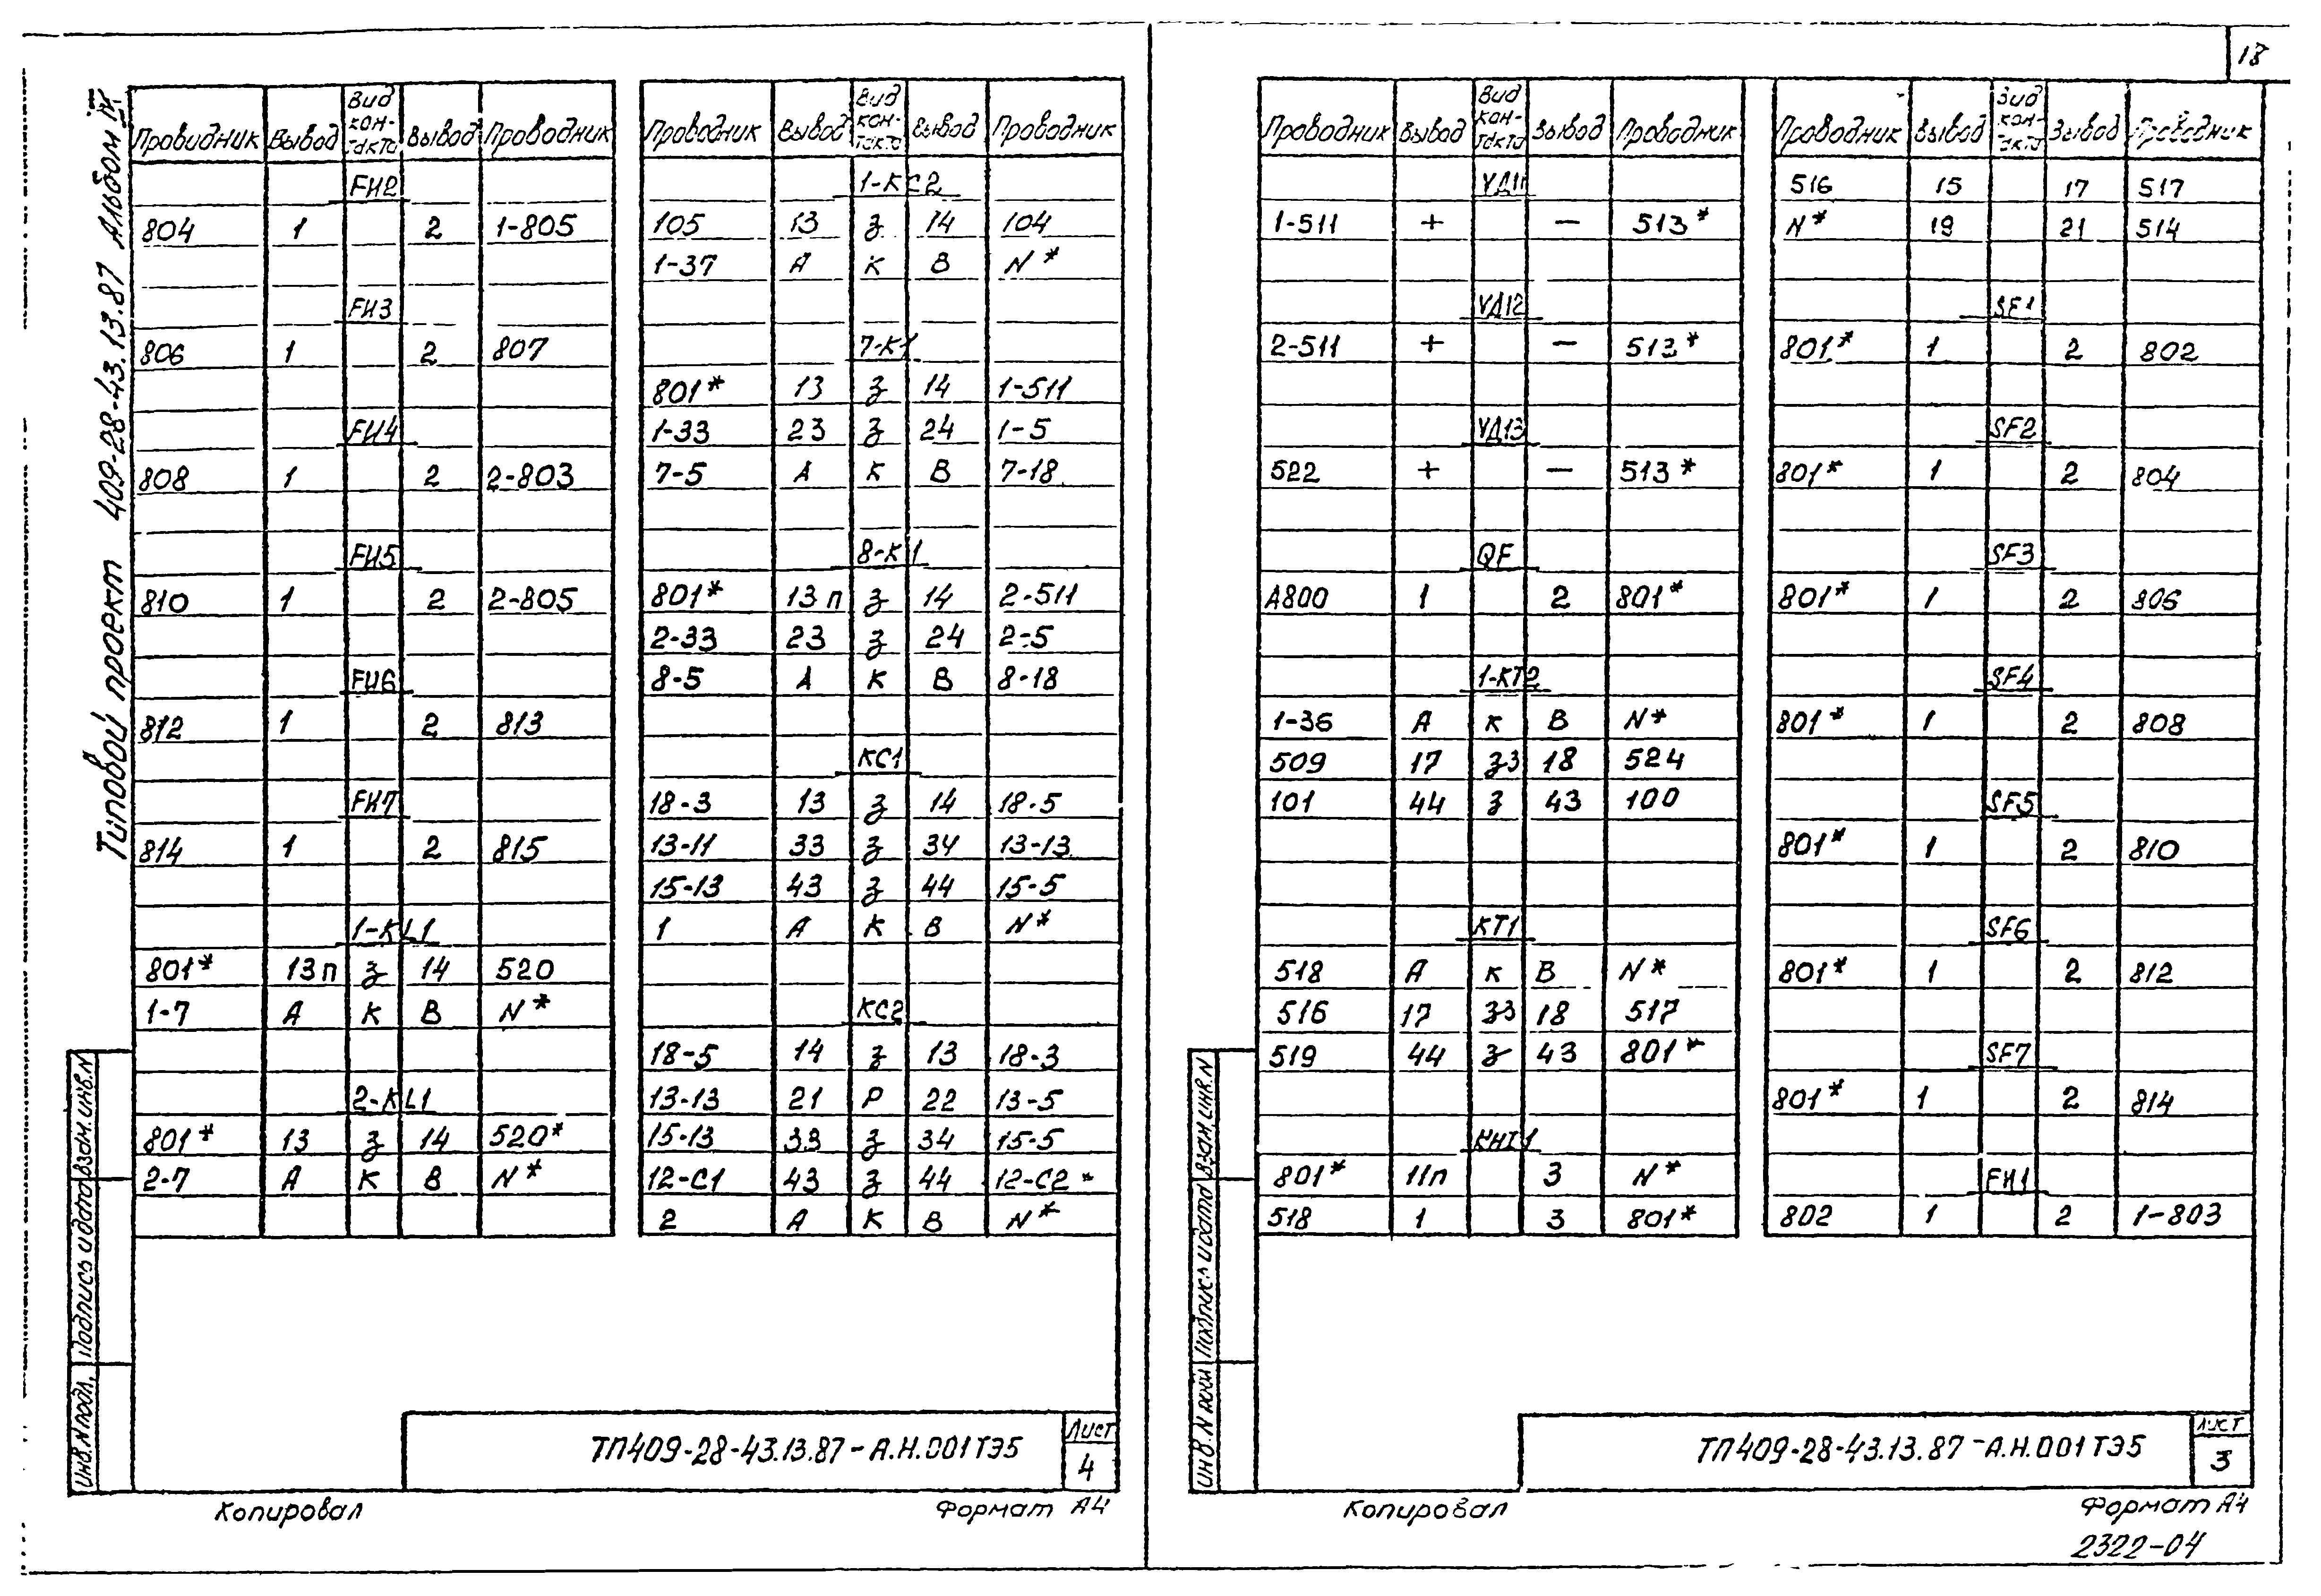 18
Типовой проект 409-28-43.13.87 Альбом IV
Проводник Вывод Вид кон-такта Вывод Проводник
FU2
804 1 2 1-805
FU3
806 1 2 807
FU4
808 1 2 2-803
FU5
810 1 2 2-805
FU6
812 1 2 813
FU7
814 1 2 815
1-KL1
801* 13п з 14 520
1-7 А К В N*
2-KL1
801* 13 з 14 520*
2-7 А К В N*
Проводник Вывод Вид кон-такта Вывод Проводник
1-КС2
105 13 з 14 104
1-37 А К В N*
7-К1
801* 13 з 14 1-511
1-33 23 з 24 1-5
7-5 А К В 7-18
8-К1
801* 13п з 14 2-511
2-33 23 з 24 2-5
8-5 А К В 8-18
КС1
18-3 13 з 14 18-5
13-11 33 з 34 13-13
15-13 43 з 44 15-5
1 А К В N*
КС2
18-5 14 з 13 18-3
13-13 21 Р 22 13-5
15-13 33 з 34 15-5
12-С1 43 з 44 12-С2*
2 А К В N*
Инв.N подл. Подпись и дата Взам.инв.N
ТП409-28-43.13.87-А.Н.001ТЭ5
Лист
4
Копировал
Формат А4
Проводник Вывод Вид кон-такта Вывод Проводник
УД11
1-511 + — 513*
УД12
2-511 + — 513*
УД13
522 + — 513*
QF
А800 1 2 801*
1-КТ2
1-36 А К В N*
509 17 зз 18 524
101 44 з 43 100
КТ1
518 А К В N*
516 17 зз 18 517
519 44 з 43 801*
801* 11п 3 N*
518 1 3 801*
Проводник Вывод Вид кон-такта Вывод Проводник
516 15 17 517
N* 19 21 514
SF1
801* 1 2 802
SF2
801* 1 2 804
SF3
801* 1 2 806
SF4
801* 1 2 808
SF5
801* 1 2 810
SF6
801* 1 2 812
SF7
801* 1 2 814
FU1
802 1 2 1-803
Инв.N Подпись и дата Взам.инв.N
ТП409-28-43.13.87-А.Н.001ТЭ5
Лист
3
Копировал
Формат А4
2322-04